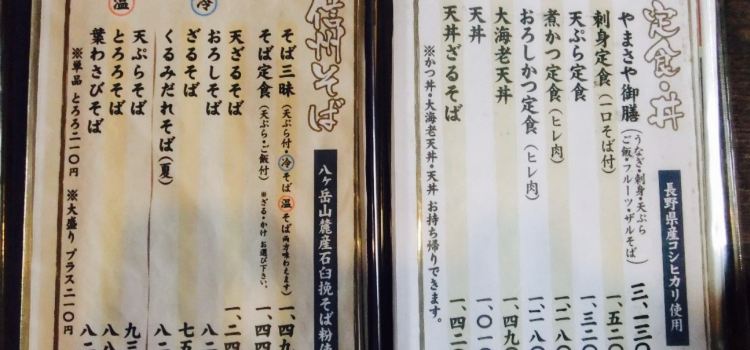 定食・丼
長野県産コシヒカリ使用
やまさや御膳(うなぎ・刺身・天ぷら ご飯・フルーツ・ザルそば)三、一三〇
刺身定食(一口そば付)一、五二〇
天ぷら定食 一、三二〇
煮かつ定食(ヒレ肉)一、二八〇
おろしかつ定食(ヒレ肉)一、二八〇
大海老天丼 一、四九
天丼 一、〇一
天丼ざるそば 一、四二
※かつ丼・大海老天丼・天丼 お持ち帰りできます。
信州そば
八ヶ岳山麓産石臼挽そば粉使
そば三昧(天ぷら付・冷そば 温そば両方味わえます)一、四九
そば定食(天ぷら・ご飯付)※ざる・かけ お選び下さい。一、四
天ざるそば 一、二四
冷
おろしそば 八二
ざるそば 七五
くるみだれそば(夏)八二
温
天ぷらそば 九三
とろろそば 八八
葉わさびそば 八二
※単品 とろろ二一〇円 ※大盛り プラス二一〇円